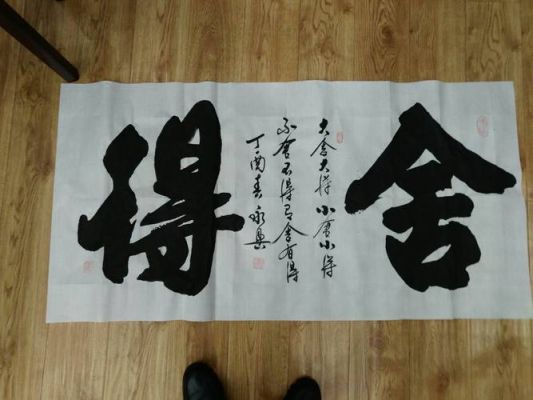 舍
大舍大得小舍小得
不舍不得有舍有得
丁酉春永
得